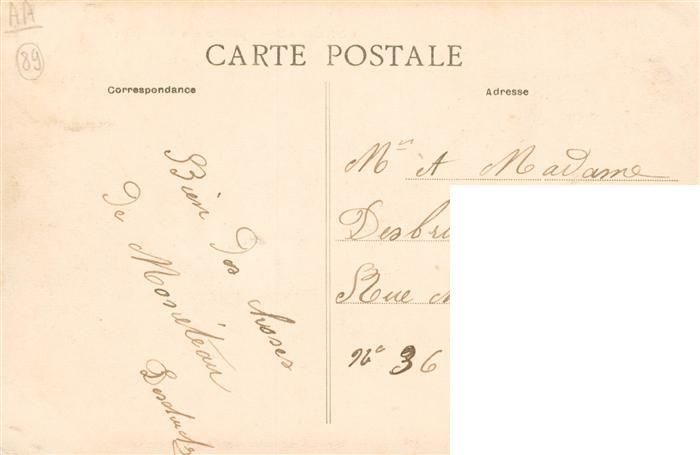 AA
89
CARTE POSTALE
Correspondance
Adresse
Bien Des Choses
De Monéteau
Mr A Madame
Rue
No 36